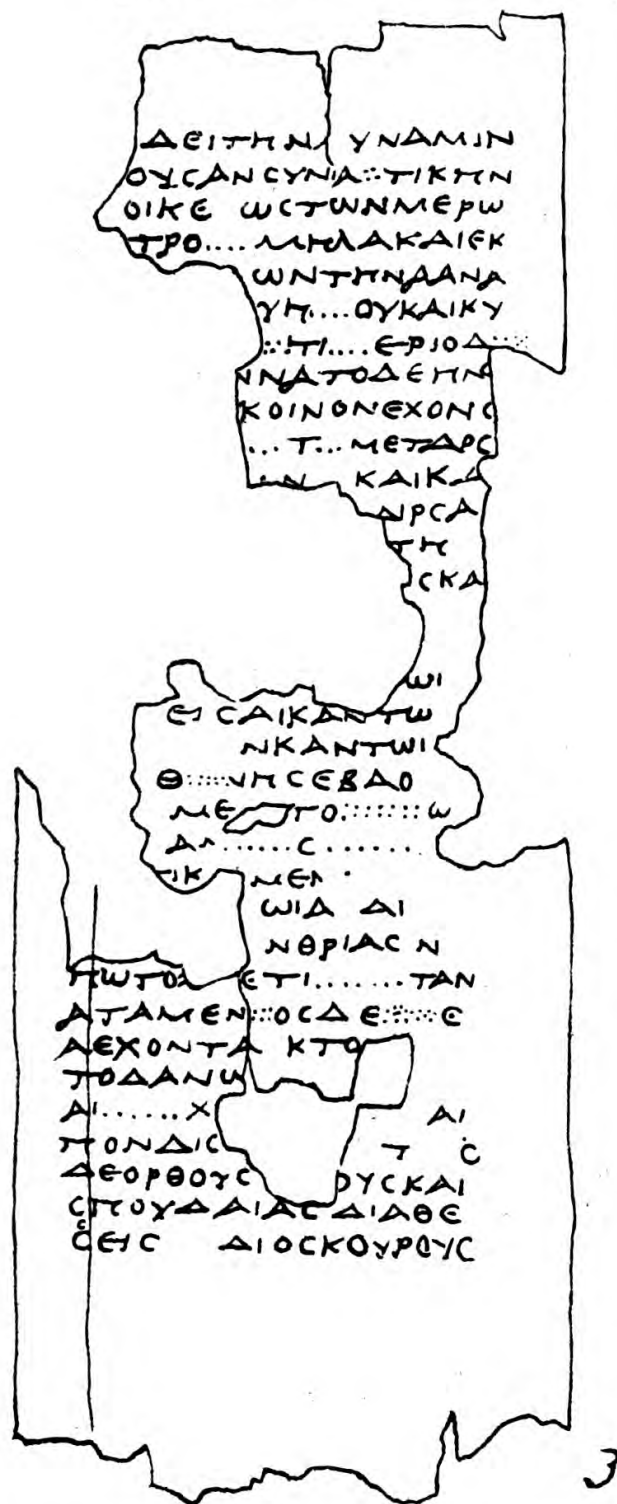 ΔΕΙΤΗΝ ΥΝΑΜΙΝ
ΟΥСΑΝСΥΝΑ::ΤΙΚΗΝ
ΟΙΚΕ ωСΤωΝΜΕΡω
ΤΡΟ....ΜΗΛΑΚΑΙΕΚ
ωΝΤΗΝΔΑΝΑ
ΥΗ....ΟΥΚΑΙΚΥ
::ΤΙ....ΕΡΙΟΔ
ΝΝΑΤΟΔΕΗΝ
ΚΟΙΝΟΝΕΧΟΝС
...Τ...ΜΕΤΑΡС
Ν ΚΑΙΚΑ
ΑΙΡСΑ
ΤΗ
СΚΑ
ωΙ
ΕΙСΑΙΚΑΝΤω
ΝΚΑΝΤωΙ
Θ::::ΝΗСΕΒΑΟ
ΜΕ ΤΟ::::::ω
Α ......С......
ΙΚ ΜΕ
ωΙΔ ΔΙ
ΝΘΡΙΑС Ν
ΠωΤΟ ΕΤΙ.......ΤΑΝ
ΑΤΑΜΕΝ::ΟСΔΕ::::Ε
ΑΕΧΟΝΤΑ ΚΤΟ
ΤΟΔΑΝω
ΑΙ......Χ ΑΙ
ΠΟΝΔΙС Τ С
ΔΕΟΡΘΟΥС ΟΥСΚΑΙ
СΠΟΥΔΑΙΑС ΔΙΑΘΕ
СΕΙС ΔΙΟСΚΟΥΡΟΥС
3